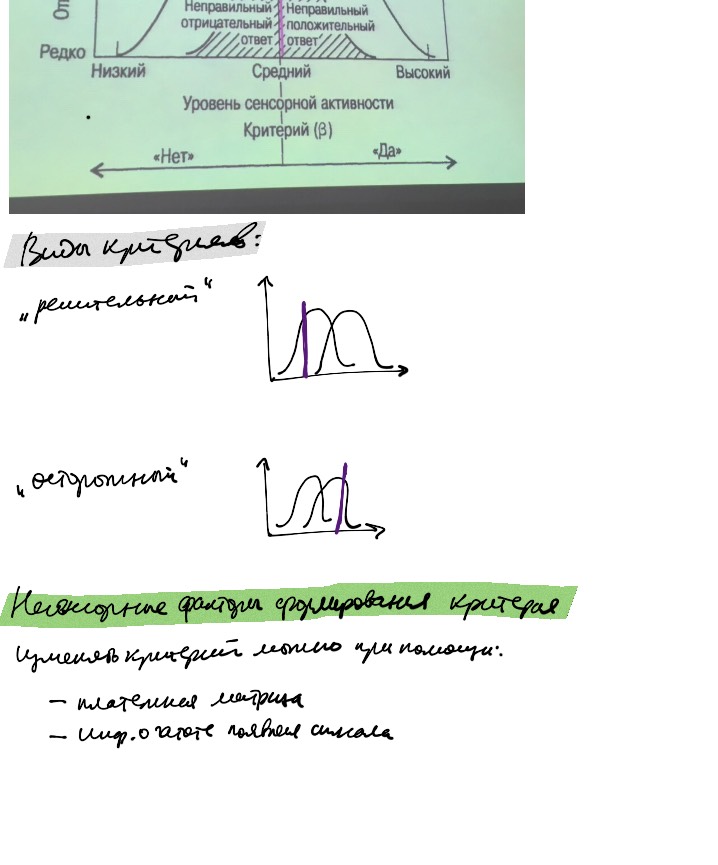 Неправильный Неправильный
отрицательный положительный
ответ ответ
Редко
Низкий Средний Высокий
Уровень сенсорной активности
Критерий (β)
«Нет» «Да»
Виды критериев:
„решительный“
„осторожный“
Несенсорные факторы формирования критерия
Изменять критерий можно при помощи:
– платежная матрица
– инф. о появления сигнала